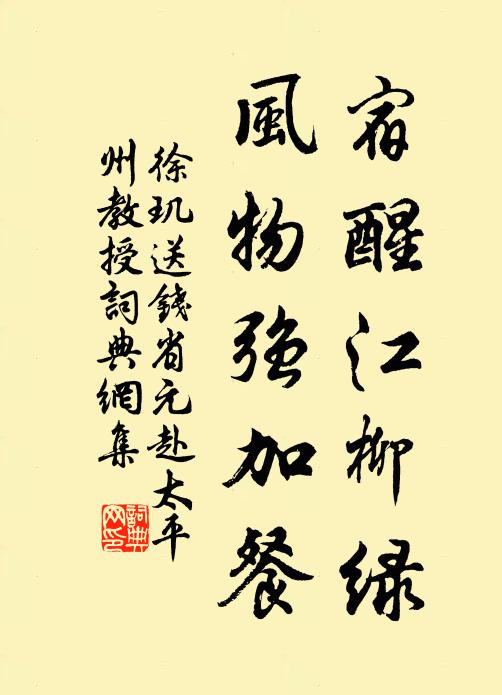 宿醒江柳綠
風物強加餐
徐玑送錢省元赴太平
州教授詞典網集
詞典網印